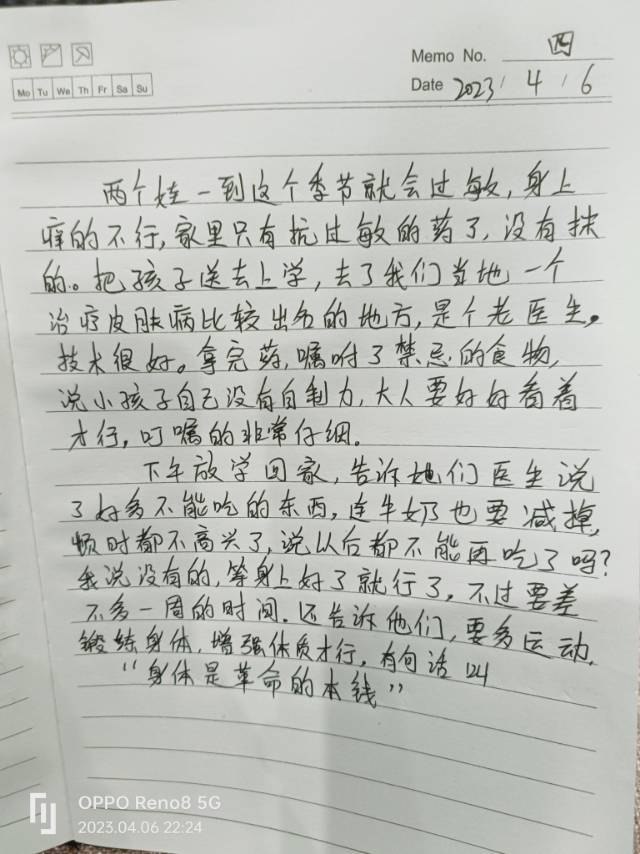 Memo No. 四
Mo Tu We Th Fr Sa Su
Date 2023 / 4 / 6
两个娃一到这个季节就会过敏，身上
痒的不行，家里只有抗过敏的药了，没有抹
的。把孩子送去上学，去了我们当地一个
治疗皮肤病比较出名的地方，是个老医生，
技术很好。拿完药，嘱咐了禁忌的食物，
说小孩子自己没有自制力，大人要好好看着
才行，叮嘱的非常仔细。
下午放学回家，告诉她们医生说
了好多不能吃的东西，连牛奶也要减掉，
顿时都不高兴了，说从后都不能再吃了吗？
我说没有的，等身上好了就行了，不过要差
不多一周的时间。还告诉他们，要多运动，
锻练身体，增强体质才行，有句话叫
“身体是革命的本钱”
OPPO Reno8 5G
2023.04.06 22:24